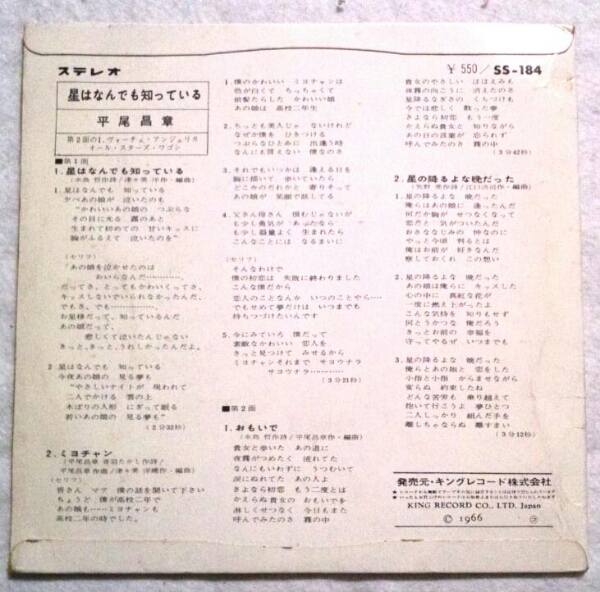 ステレオ
¥ 550 / SS-184
星はなんでも知っている
平尾昌章
第2面の1. ヴォーチェ・アンジェリカ
オール・スターズ・ワゴン
■第1面
1. 星はなんでも知っている
(水島 哲作詩/津々美 洋作・編曲)
1. 星はなんでも 知っている
夕べあの娘が 泣いたのも
“かわいいあの娘の つぶらな
その目に光る 露のあと
生まれて初めての 甘いキッスに
胸がふるえて 泣いたのを”
(セリフ)
「あの娘を泣かせたのは
おいらなんだ…………、
だってさ、とってもかわいくってさ、
キッスしないでいられなかったんだ、
でもさ、でも…………、
お星様だって、知っているんだ
あの娘だって、
悲しくて泣いたんじゃない
きっと、きっと、うれしかったんだよ。
2 星はなんでも 知っている
今夜あの娘の 見る夢も
“やさしいナイトが 現われて
二人でかける 雲の上
木ぼりの人形 にぎって眠る
若いあの娘の 見る夢も”
(2分32秒)
2. ミヨチャン
(平尾昌章 音羽たかし作詩/
平尾昌章 作曲/津々美 洋補作・編曲)
(セリフ)
皆さん ママ 僕の話を聞いて下さい
ちょうど 僕が高校二年で
あの娘も…… ミヨチャンも
高校二年の時でした。
1. 僕のかわいい ミヨチャンは
色が白くて ちっちゃくて
前髪たらした かわいい娘
あの娘は 高校二年生
2. ちっとも美人じゃ ないけれど
なぜか僕を ひきつける
つぶらなひとみに 出逢う時
なんにも言えない 僕なのさ
3. それでもいつかは 逢える日を
胸に描いて 歩いていたら
どこかのだれかと 寄りそって
あの娘が 笑顔で話してる
4. 父さん母さん 恨むじゃないが
も少し勇気が あったなら
も少し器量よく 生まれたら
こんなことには なるまいに
(セリフ)
そんなわけで
僕の初恋は 失敗に終わりました
こんな僕だから
恋人のことなんか いつのことやら…
でもせめて夢だけは いつまでも
持ちつづけたいんです
5. 今にみていろ 僕だって
素敵なかわいい 恋人を
きっと見つけて みせるから
ミヨチャンそれまで サヨウナラ
サヨウナラ…………
(3分21秒)
■第2面
1. おもいで
(水島 哲作詩/平尾昌章作・編曲)
貴女と歩いた あの道に
夜霧がつめたく 流れてた
なんにもいわずに うつむいて
涙にぬれてた あの人よ
さよなら初恋 もう二度とは
かえらぬ貴女の おもいでを
淋しくせつなく 今日もまた
呼んでみたのさ 霧の中
貴女のやさしい ほほえみも
夜霧の向こうに 消えたのさ
星降るなぎさの くちづけも
今では悲しく 散った夢
さよなら初恋 もう一度
かえらぬ貴女と 知りながら
あの日の言葉が 忘れずに
呼んでみたのさ 霧の中
(3分42秒)
2. 星の降るよな晩だった
1. 星の降るよな 晩だった
俺らはあの娘に 逢ったんだ
何だか胸が せつなくなって
恋だと 気がついたんだ
おさななじみの 仲なのに
やっと今頃 判るとは
俺はお前が 好きなんだ
察しておくれ この想い
2. 星の降るよな 晩だった
あの娘は俺らに キッスした
心の中に 真紅な花が
一度に燃え上がったよ
こんな気持を 知りもせず
何とうかつな 俺だろう
きっとお前の 幸福を
守ってやるぜ いつまでも
3. 星の降るよな 晩だった
俺らとあの娘と 恋をした
小指と小指 からませながら
変らぬ 約束したね
どんな苦労も 乗り越えて
抱いて行こうよ 夢ひとつ
二人しっかり 組んだ手を
離しちゃならぬ 離すまい
(3分12秒)
発売元・キングレコード株式会社
KING RECORD CO., LTD. Japan
© 1966